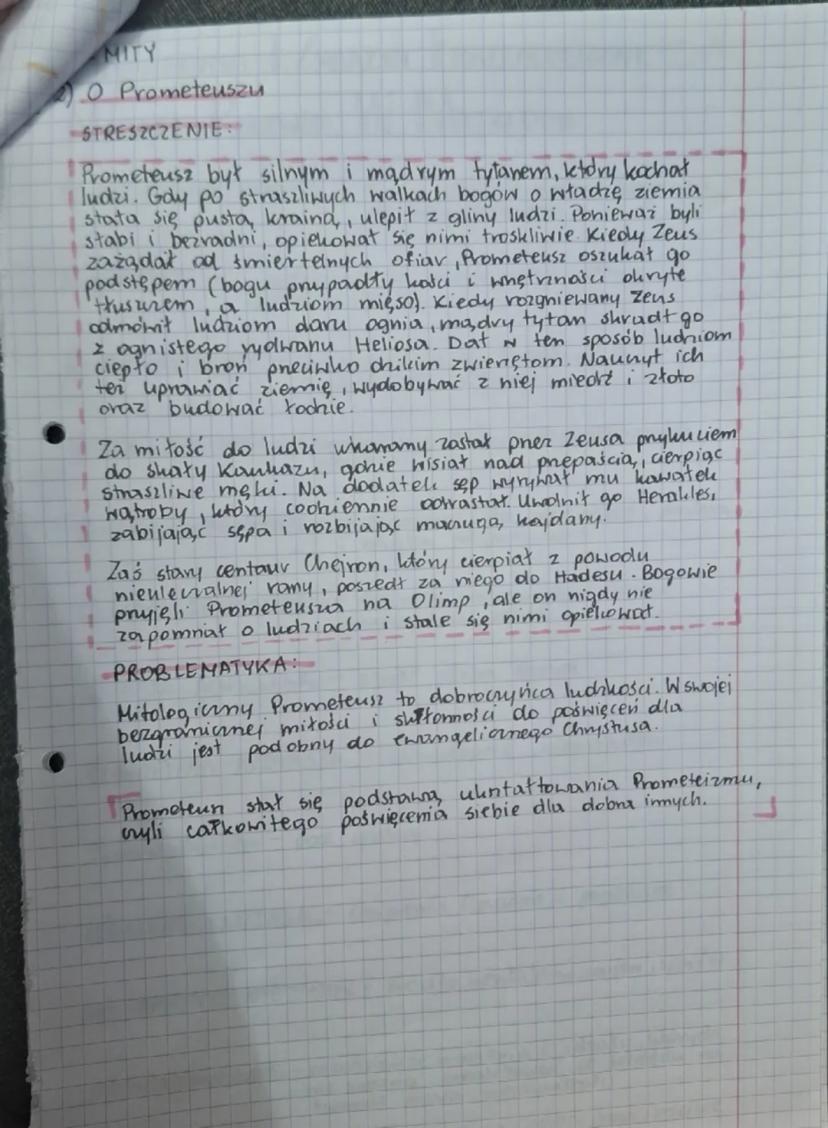 MITY
2) O Prometeuszu
STRESZCZENIE:
Prometeusz był silnym i mądrym tytanem, który kochał
ludzi. Gdy po straszliwych walkach bogów o władzę ziemia
stała się pustą krainą, ulepił z gliny ludzi. Ponieważ byli
słabi i bezradni, opiekował się nimi troskliwie. Kiedy Zeus
zażądał od śmiertelnych ofiar, Prometeusz oszukał go
podstępem (bogu przypadły kości i wnętrzności okryte
tłuszczem, a ludziom mięso). Kiedy rozgniewany Zeus
odmówił ludziom daru ognia, mądry tytan skradł go
z ognistego rydwanu Heliosa. Dał w ten sposób ludziom
ciepło i broń przeciwko dzikim zwierzętom. Nauczył ich
też uprawiać ziemię, wydobywać z niej miedź i złoto
oraz budować łodzie.
Za miłość do ludzi ukarany został przez Zeusa przykuciem
do skały Kaukazu, gdzie wisiał nad przepaścią, cierpiąc
straszliwe męki. Na dodatek sęp wyrywał mu kawałek
wątroby, który codziennie odrastał. Uwolnił go Herakles,
zabijając sępa i rozbijając maczugą kajdany.
Zaś stary centaur Chejron, który cierpiał z powodu
nieuleczalnej rany, poszedł za niego do Hadesu. Bogowie
przyjęli Prometeusza na Olimp, ale on nigdy nie
zapomniał o ludziach i stale się nimi opiekował.
PROBLEMATYKA:
Mitologiczny Prometeusz to dobroczyńca ludzkości. W swojej
bezgranicznej miłości i skłonności do poświęceń dla
ludzi jest podobny do ewangelicznego Chrystusa.
Prometeusz stał się podstawą ukształtowania Prometeizmu,
czyli całkowitego poświęcenia siebie dla dobra innych.